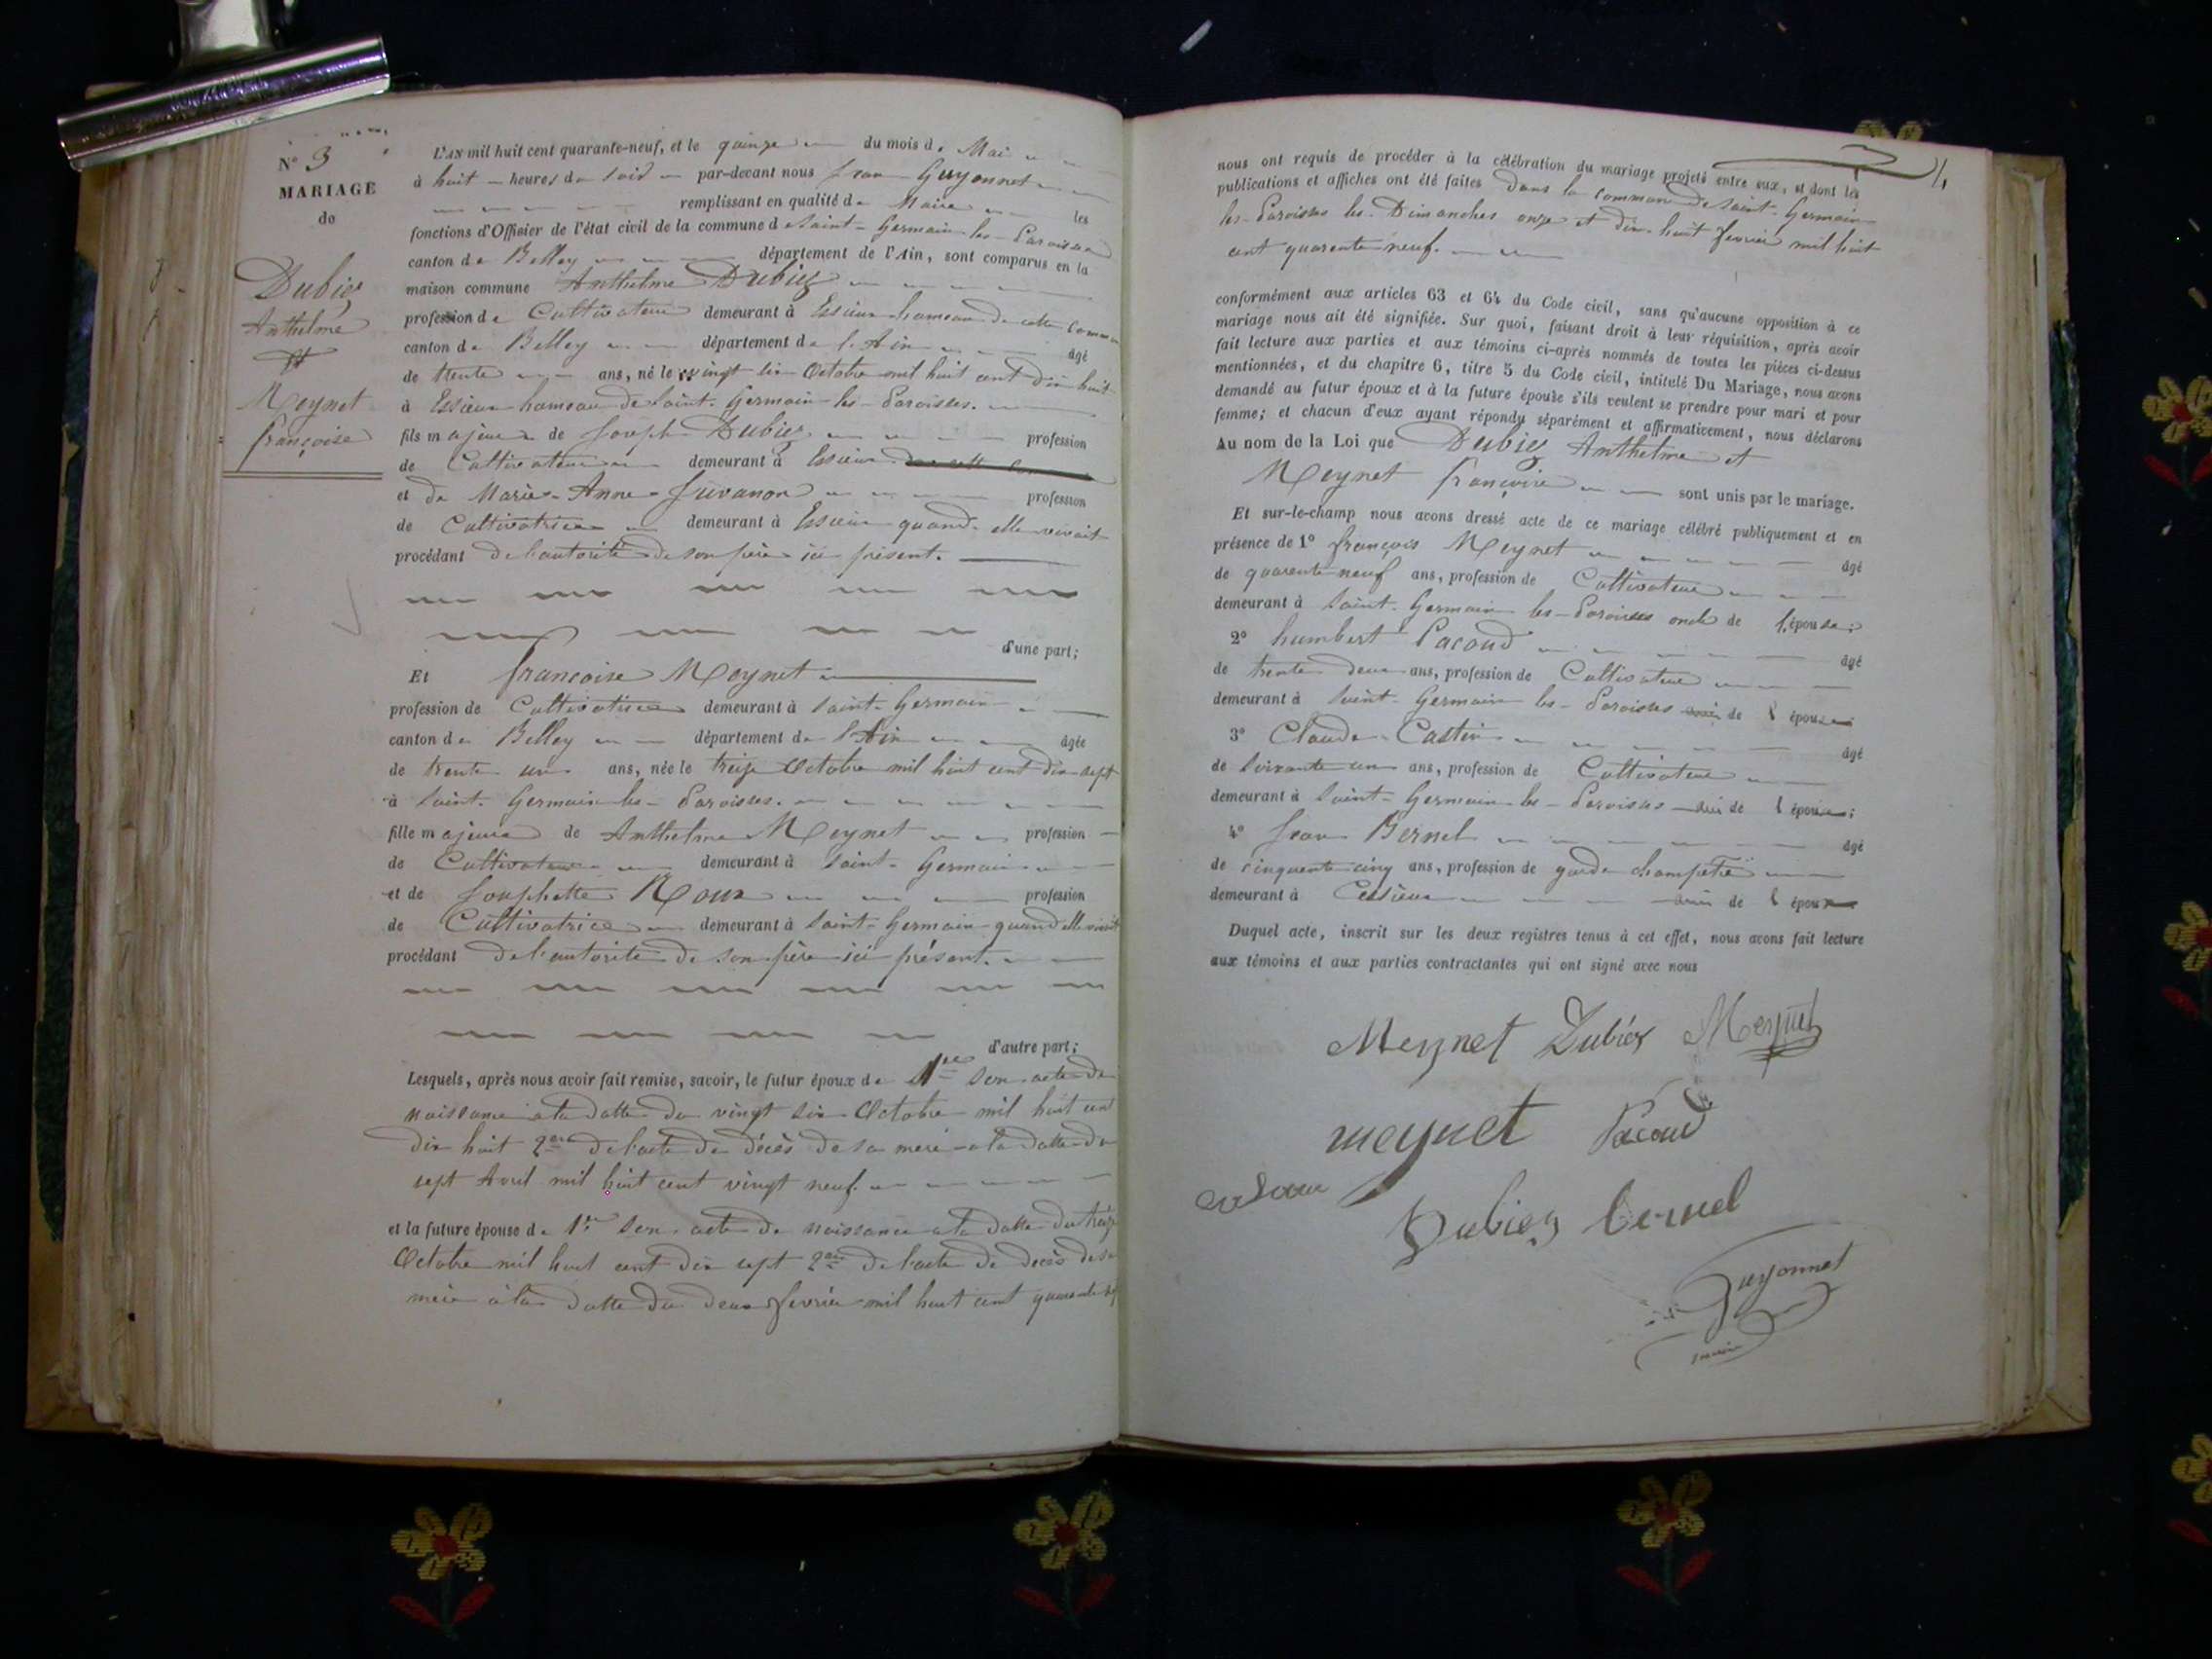 N° 3
MARIAGE
de
Dubiez
Anthelme
et
Meynet
françoise
L'AN mil huit cent quarante-neuf, et le quinze du mois de Mai
à huit heures du soir par-devant nous Jean Guyonnet
remplissant en qualité de Maire les
fonctions d'Officier de l'état civil de la commune de Saint-Germain-les-Paroisses
canton de Belley département de l'Ain, sont comparus en la
maison commune Anthelme Dubiez
profession de Cultivateur demeurant à Essieux hameau de cette Commune
canton de Belley département de l'Ain âgé
de trente ans, né le vingt six Octobre mil huit cent dix huit
à Essieux hameau de Saint-Germain-les-Paroisses.
fils majeur de Joseph Dubiez profession
de Cultivateur demeurant à Essieux
et de Marie-Anne Juvanon profession
de Cultivatrice demeurant à Essieux quand elle vivait
procédant de l'autorité de son père ici présent.
d'une part;
Et françoise Meynet
profession de Cultivatrice demeurant à Saint-Germain
canton de Belley département de l'Ain âgée
de trente un ans, née le treize Octobre mil huit cent dix sept
à Saint-Germain-les-Paroisses.
fille majeure de Anthelme Meynet profession
de Cultivateur demeurant à Saint-Germain
et de Josephatte Roux profession
de Cultivatrice demeurant à Saint-Germain quand elle vivait
procédant de l'autorité de son père ici présent.
d'autre part;
Lesquels, après nous avoir fait remise, savoir, le futur époux de 1er Son acte de
naissance à la datte du vingt six Octobre mil huit cent
dix huit 2me De l'acte de décès de sa mère à la datte du
sept Avril mil huit cent vingt neuf.
et la future épouse de 1er Son acte de naissance à la datte du treize
Octobre mil huit cent dix sept 2me De l'acte de décès de sa
mère à la datte du deux fevrier mil huit cent quarante
nous ont requis de procéder à la célébration du mariage projeté entre eux, et dont les
publications et affiches ont été faites dans la commune de Saint-Germain
les-Paroisses les Dimanches onze et dix-huit fevrier mil huit
cent quarante neuf.
conformément aux articles 63 et 64 du Code civil, sans qu'aucune opposition à ce
mariage nous ait été signifiée. Sur quoi, faisant droit à leur réquisition, après avoir
fait lecture aux parties et aux témoins ci-après nommés de toutes les pièces ci-dessus
mentionnées, et du chapitre 6, titre 5 du Code civil, intitulé Du Mariage, nous avons
demandé au futur époux et à la future épouse s'ils veulent se prendre pour mari et pour
femme; et chacun d'eux ayant répondu séparément et affirmativement, nous déclarons
Au nom de la Loi que Dubiez Anthelme et
Meynet françoise sont unis par le mariage.
Et sur-le-champ nous avons dressé acte de ce mariage célébré publiquement et en
présence de 1° françois Meynet âgé
de quarante neuf ans, profession de Cultivateur
demeurant à Saint-Germain les-Paroisses oncle de l'épouse;
2° humbert Pacoud âgé
de trente deux ans, profession de Cultivateur
demeurant à Saint-Germain les-Paroisses de l'épouse
3° Claude Castin âgé
de soixante un ans, profession de Cultivateur
demeurant à Saint-Germain-les-Paroisses ami de l'épouse;
4° Jean Bernel âgé
de cinquante cinq ans, profession de garde champêtre
demeurant à Cessieux ami de l'époux
Duquel acte, inscrit sur les deux registres tenus à cet effet, nous avons fait lecture
aux témoins et aux parties contractantes qui ont signé avec nous
Meynet Dubiez Meynet
meynet Pacoud
Dubiez bernel
Guyonnet